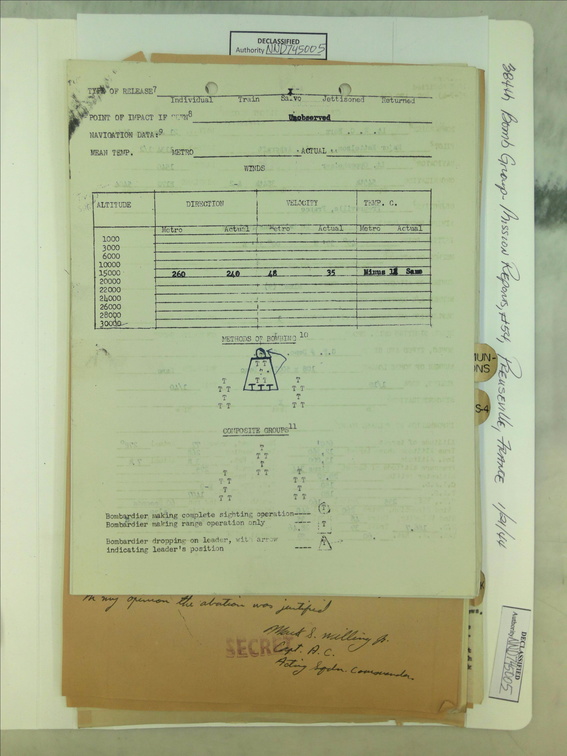 DECLASSIFIED
Authority NND745005
TYPE OF RELEASE7
X
Individual Train Salvo Jettisoned Returned
POINT OF IMPACT IF 8 Unobserved
NAVIGATION DATA:9
MEAN TEMP. METRO ACTUAL
WINDS
ALTITUDE DIRECTION VELOCITY TEMP. C.
Metro Actual Metro Actual Metro Actual
1000
3000
6000
10000
15000 260 240 48 35 Minus Same
20000
22000
24000
26000
28000
30000
METHODS OF BOMBING 10
T T
T T T
T T T
T T T T
T T
T T T T
COMPOSITE GROUPS11
T
T T
T
T T T T
T T T T
T T
T T T T
Bombardier making complete sighting operation---- T
Bombardier making range operation only ---- T
Bombardier dropping on leader, with arrow
indicating leader's position ---- T
In my opinion the abortion was justified
SECRET
Merck S. Milling Jr.
Capt. A.C.
Acting Sqdn. Commander.
384th Bomb Group - Mission Reports, #54, Preuseville, France 1/21/44
MUN-
ONS
S-4
DECLASSIFIED
Authority NND745005